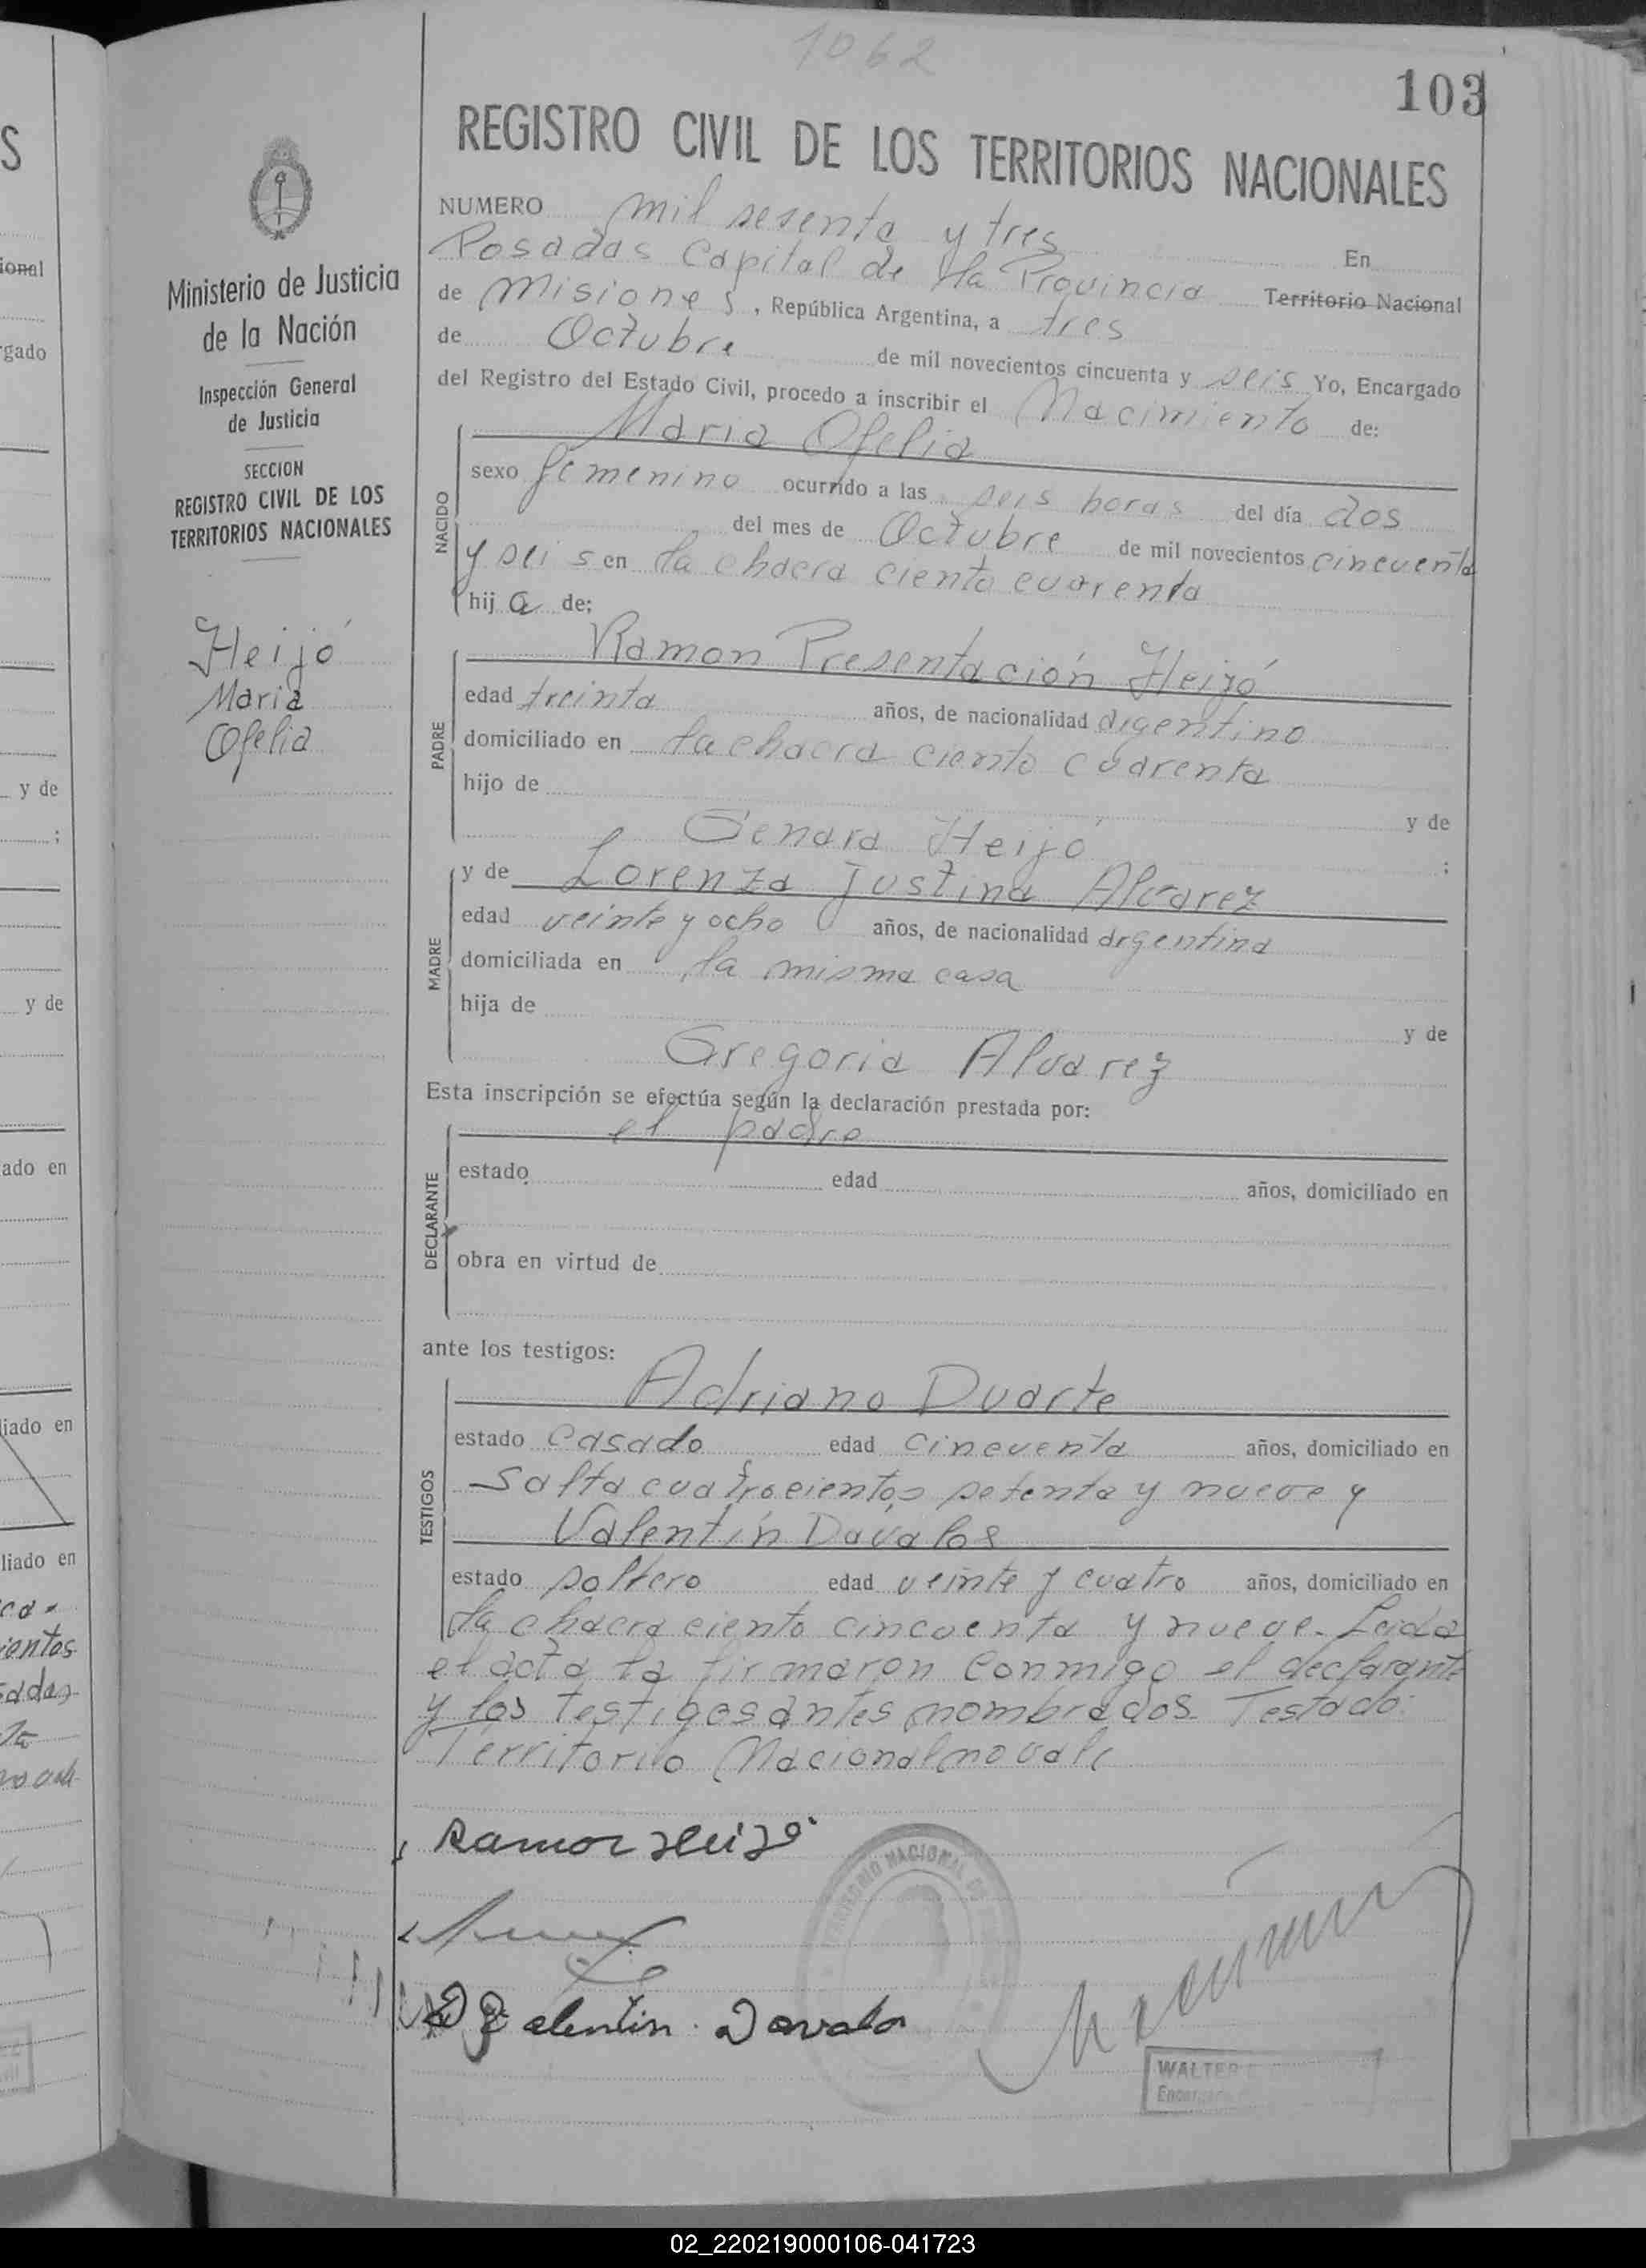 1062
103
REGISTRO CIVIL DE LOS TERRITORIOS NACIONALES
NUMERO mil sesenta y tres En
Posadas Capital de la Provincia Territorio Nacional
de Misiones, República Argentina, a tres
de Octubre de mil novecientos cincuenta y seis Yo, Encargado
del Registro del Estado Civil, procedo a inscribir el Nacimiento de:
Maria Ofelia
NACIDO
sexo femenino ocurrido a las seis horas del día dos
del mes de Octubre de mil novecientos cincuenta
y seis en la chacra ciento cuarenta
hij a de:
Ramon Presentación Heijó
PADRE
edad treinta años, de nacionalidad argentino
domiciliado en la chacra ciento cuarenta
hijo de y de
Genara Heijó ;
y de Lorenza Justina Alvarez
MADRE
edad veinte y ocho años, de nacionalidad argentina
domiciliada en la misma casa
hija de y de
Gregoria Alvarez
Esta inscripción se efectúa según la declaración prestada por:
el padre
DECLARANTE
estado edad años, domiciliado en
obra en virtud de
ante los testigos:
Adriano Duarte
TESTIGOS
estado casado edad cincuenta años, domiciliado en
Salta cuatrocientos setenta y nueve y
Valentín Dávalos
estado soltero edad veinte y cuatro años, domiciliado en
la chacra ciento cincuenta y nueve. Leida
el acta la firmaron conmigo el declarante
y los testigos antes nombrados. Testado:
Territorio Nacional no vale
Ramon Heijó
Valentin Davalo
TERRITORIO NACIONAL DE
WALTER
Encargado
Ministerio de Justicia
de la Nación
Inspección General
de Justicia
SECCION
REGISTRO CIVIL DE LOS
TERRITORIOS NACIONALES
Heijó
Maria
Ofelia
S
ional
rgado
y de
;
y de
ado en
liado en
liado en
ientos
02_220219000106-041723